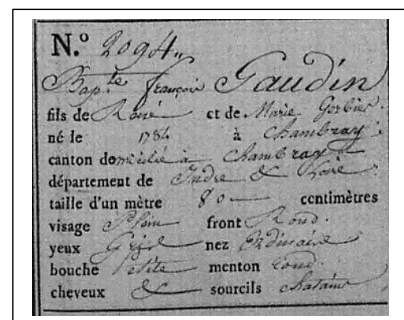 N.º 2094.
Bap.te françois Gaudin
fils de René et de Marie Gerbier
né le 1784 à Chambray
canton domicilié à Chambray
département de Indre & Loire
taille d'un mètre 80 centimètres
visage Plein front Rond.
yeux nez Ordinaire
bouche petite menton rond.
cheveux & sourcils chatains